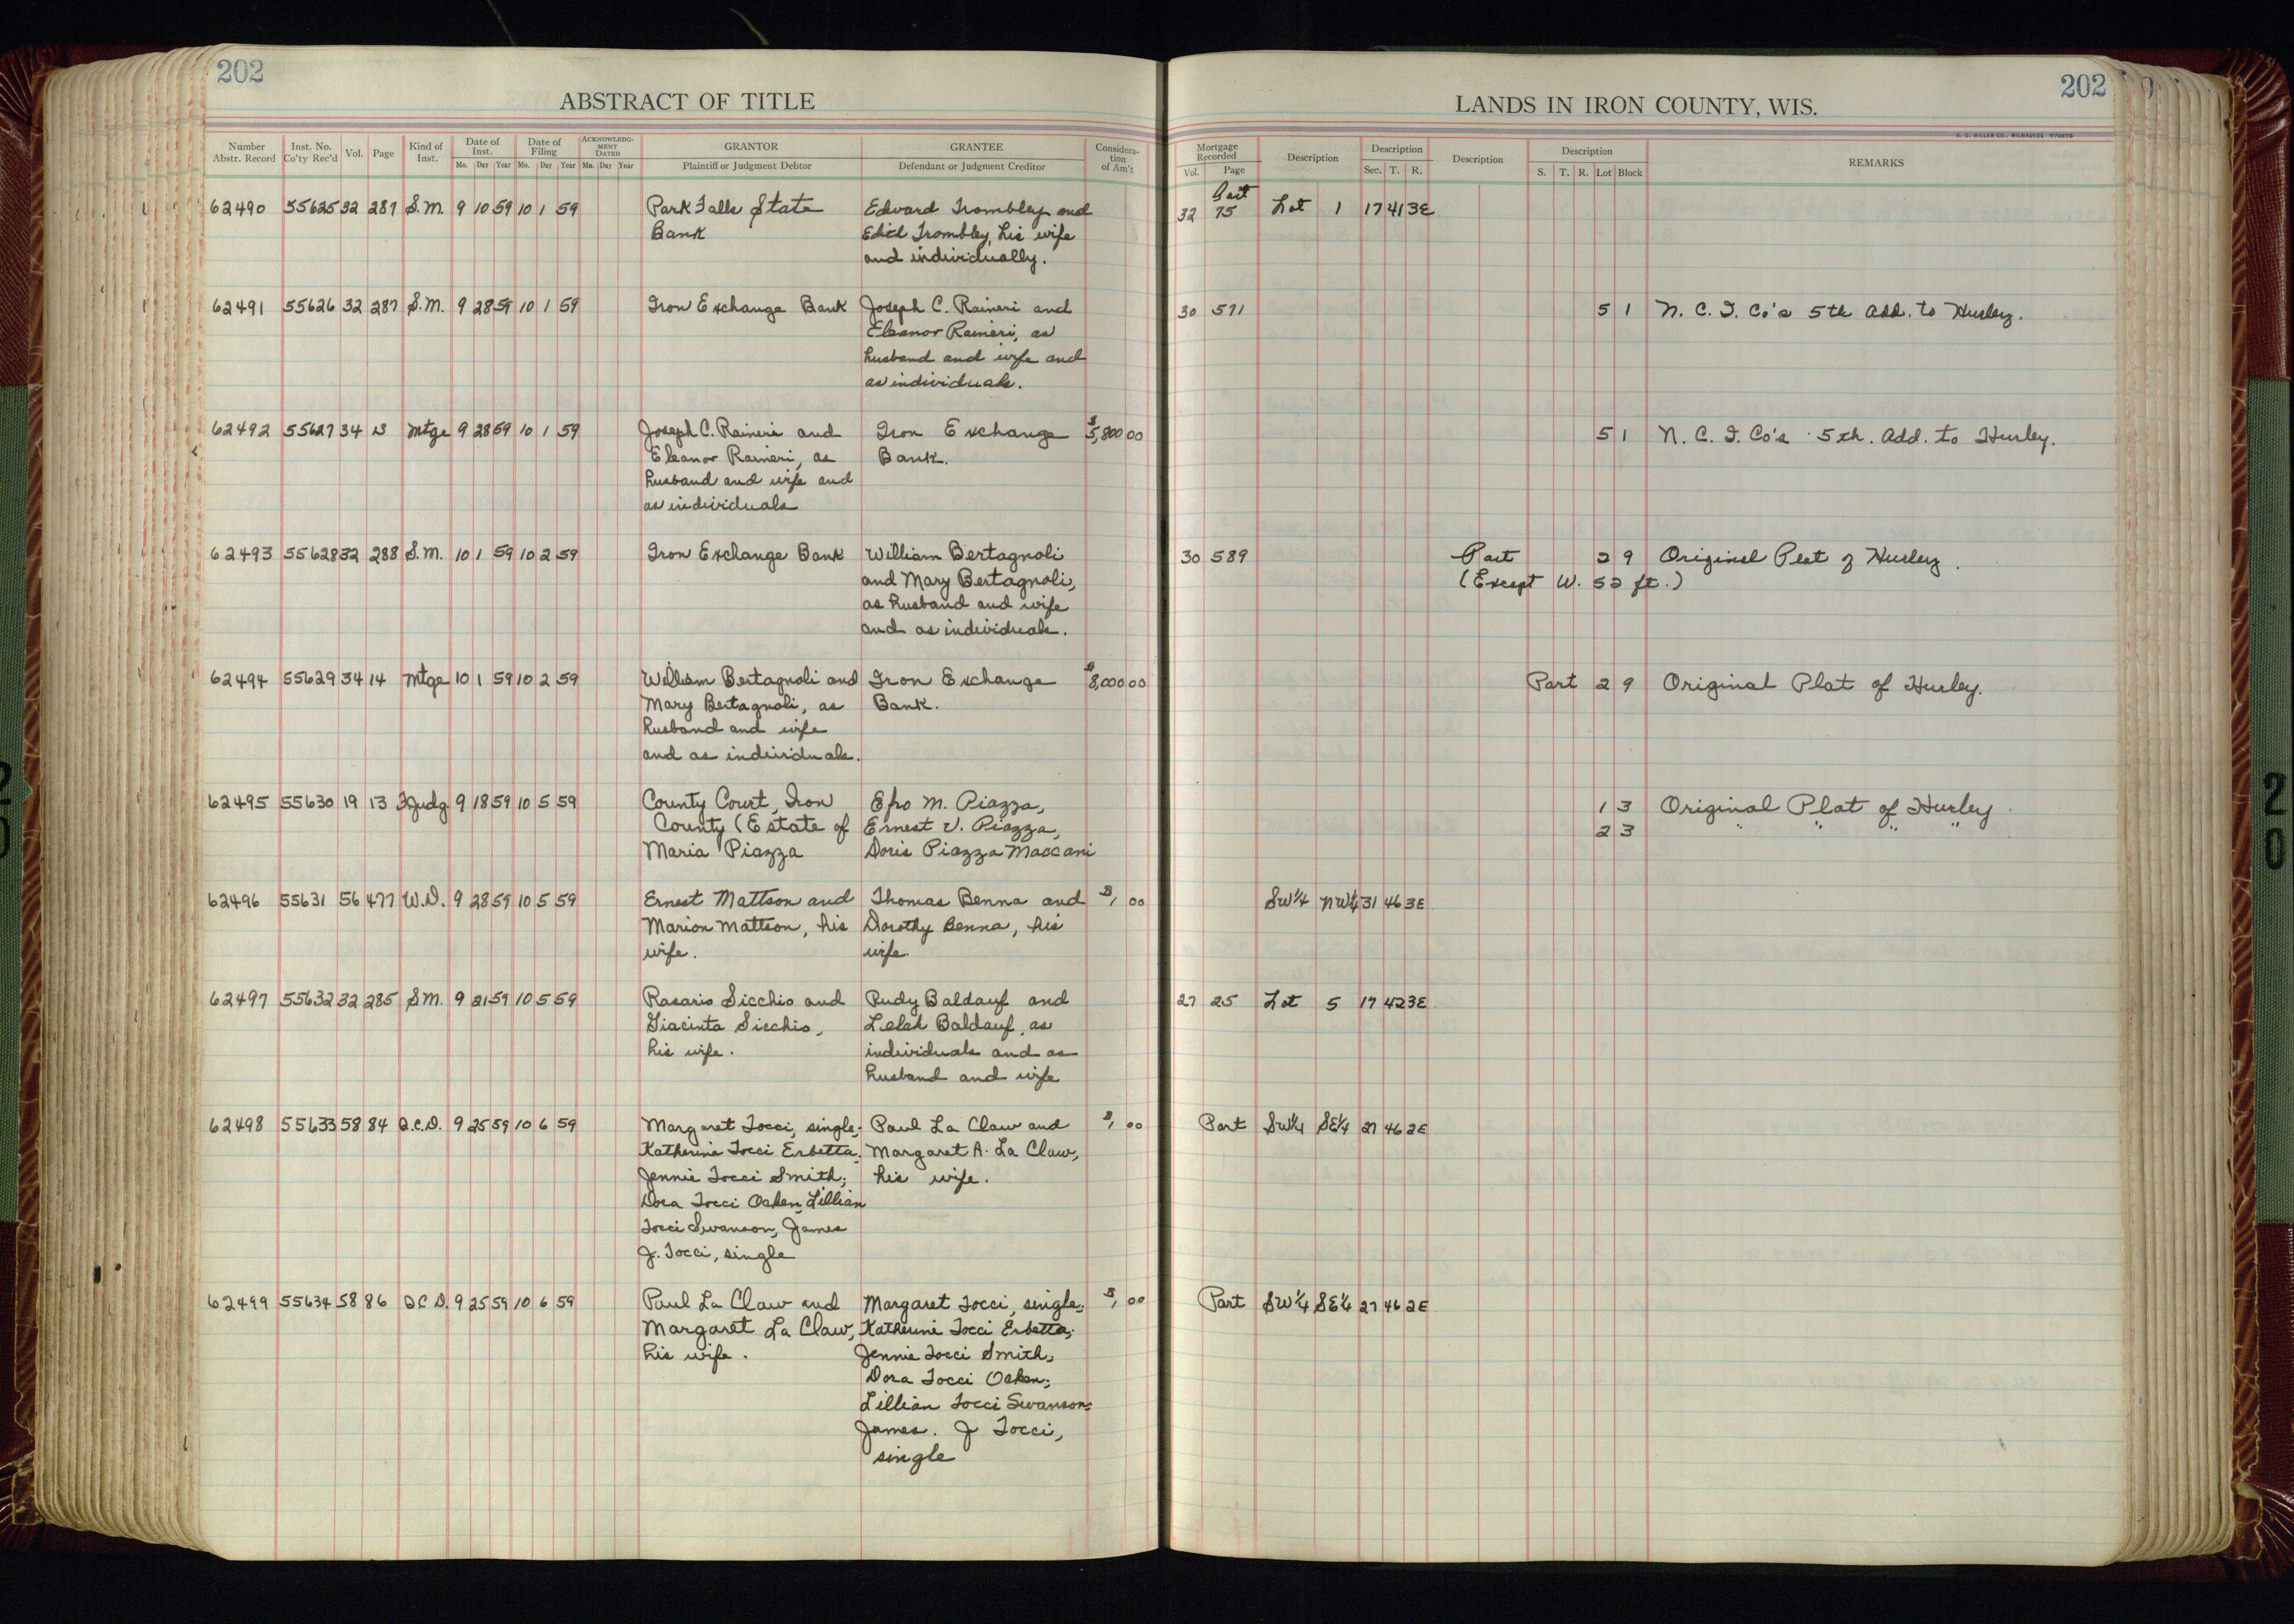 202
ABSTRACT OF TITLE
Number Abstr. Record Inst. No. Co'ty Rec'd Vol. Page Kind of Inst. Date of Inst. Mo. Day Year Date of Filing Mo. Day Year ACKNOWLEDG-MENT DATED Mo. Day Year GRANTOR Plaintiff or Judgment Debtor GRANTEE Defendant or Judgment Creditor Considera-tion of Am't
62490 55625 32 287 S.M. 9 10 59 10 1 59 Park Falls State Edward Trombley and
Bank Trombley, his wife
and individually.
62491 55626 32 287 S.M. 9 28 59 10 1 59 Iron Exchange Bank Joseph C. Raineri and
Eleanor Raineri, as
husband and wife and
as individuals.
62492 55627 34 13 Mtge 9 28 59 10 1 59 Joseph C. Raineri and Iron Exchange $5,800 00
Eleanor Raineri, as Bank.
husband and wife and
as individuals
62493 55628 32 288 S.M. 10 1 59 10 2 59 Iron Exchange Bank William Bertagnoli
and Mary Bertagnoli,
as husband and wife
and as individuals.
62494 55629 34 14 Mtge 10 1 59 10 2 59 William Bertagnoli and Iron Exchange $8,000 00
Mary Bertagnoli, as Bank.
husband and wife
and as individuals.
62495 55630 19 13 FJudg. 9 18 59 10 5 59 County Court, Iron M. Piazza,
County (Estate of Ernest V. Piazza,
Maria Piazza Doris Piazza Maccani
62496 55631 56 477 W.D. 9 28 59 10 5 59 Ernest Mattson and Thomas Benna and $1, 00
Marion Mattson, his Dorothy Benna, his
wife. wife.
62497 55632 32 285 S.M. 9 21 59 10 5 59 Rasario Sicchio and Rudy Baldauf and
Giacinta Sicchio, Lelah Baldauf, as
his wife. individuals and as
husband and wife
62498 55633 58 84 Q.C.D. 9 25 59 10 6 59 Margaret Tocci, single; Paul La Claw and $1, 00
Katherine Tocci Erbetta; Margaret A. La Claw,
Jennie Tocci Smith; his wife.
Dora Tocci Lillian
Tocci Swanson, James
J. Tocci, single
62499 55634 58 86 Q.C.D. 9 25 59 10 6 59 Paul La Claw and Margaret Tocci, single; $1, 00
Margaret La Claw, Katherine Tocci Erbetta;
his wife. Jennie Tocci Smith;
Dora Tocci
Lillian Tocci Swanson;
James. J Tocci,
single
202
LANDS IN IRON COUNTY, WIS.
H. C. MILLER CO., MILWAUKEE
Mortgage Recorded Vol. Page Description Description Sec. T. R. Description Description S. T. R. Lot Block REMARKS
32 75 Part Lot 1 17 41 3E
30 571 5 1 N. C. I. Co's 5th Add. to Hurley.
5 1 N. C. I. Co's 5th. Add. to Hurley.
30 589 Part 2 9 Original Plat of Hurley.
(Except W. 52 ft.)
Part 2 9 Original Plat of Hurley.
1 3 Original Plat of Hurley
2 3 " " " "
SW¼ NW¼ 31 46 3E
27 25 Lot 5 17 42 3E
Part SW¼ SE¼ 27 46 2E
Part SW¼ SE¼ 27 46 2E
2
0